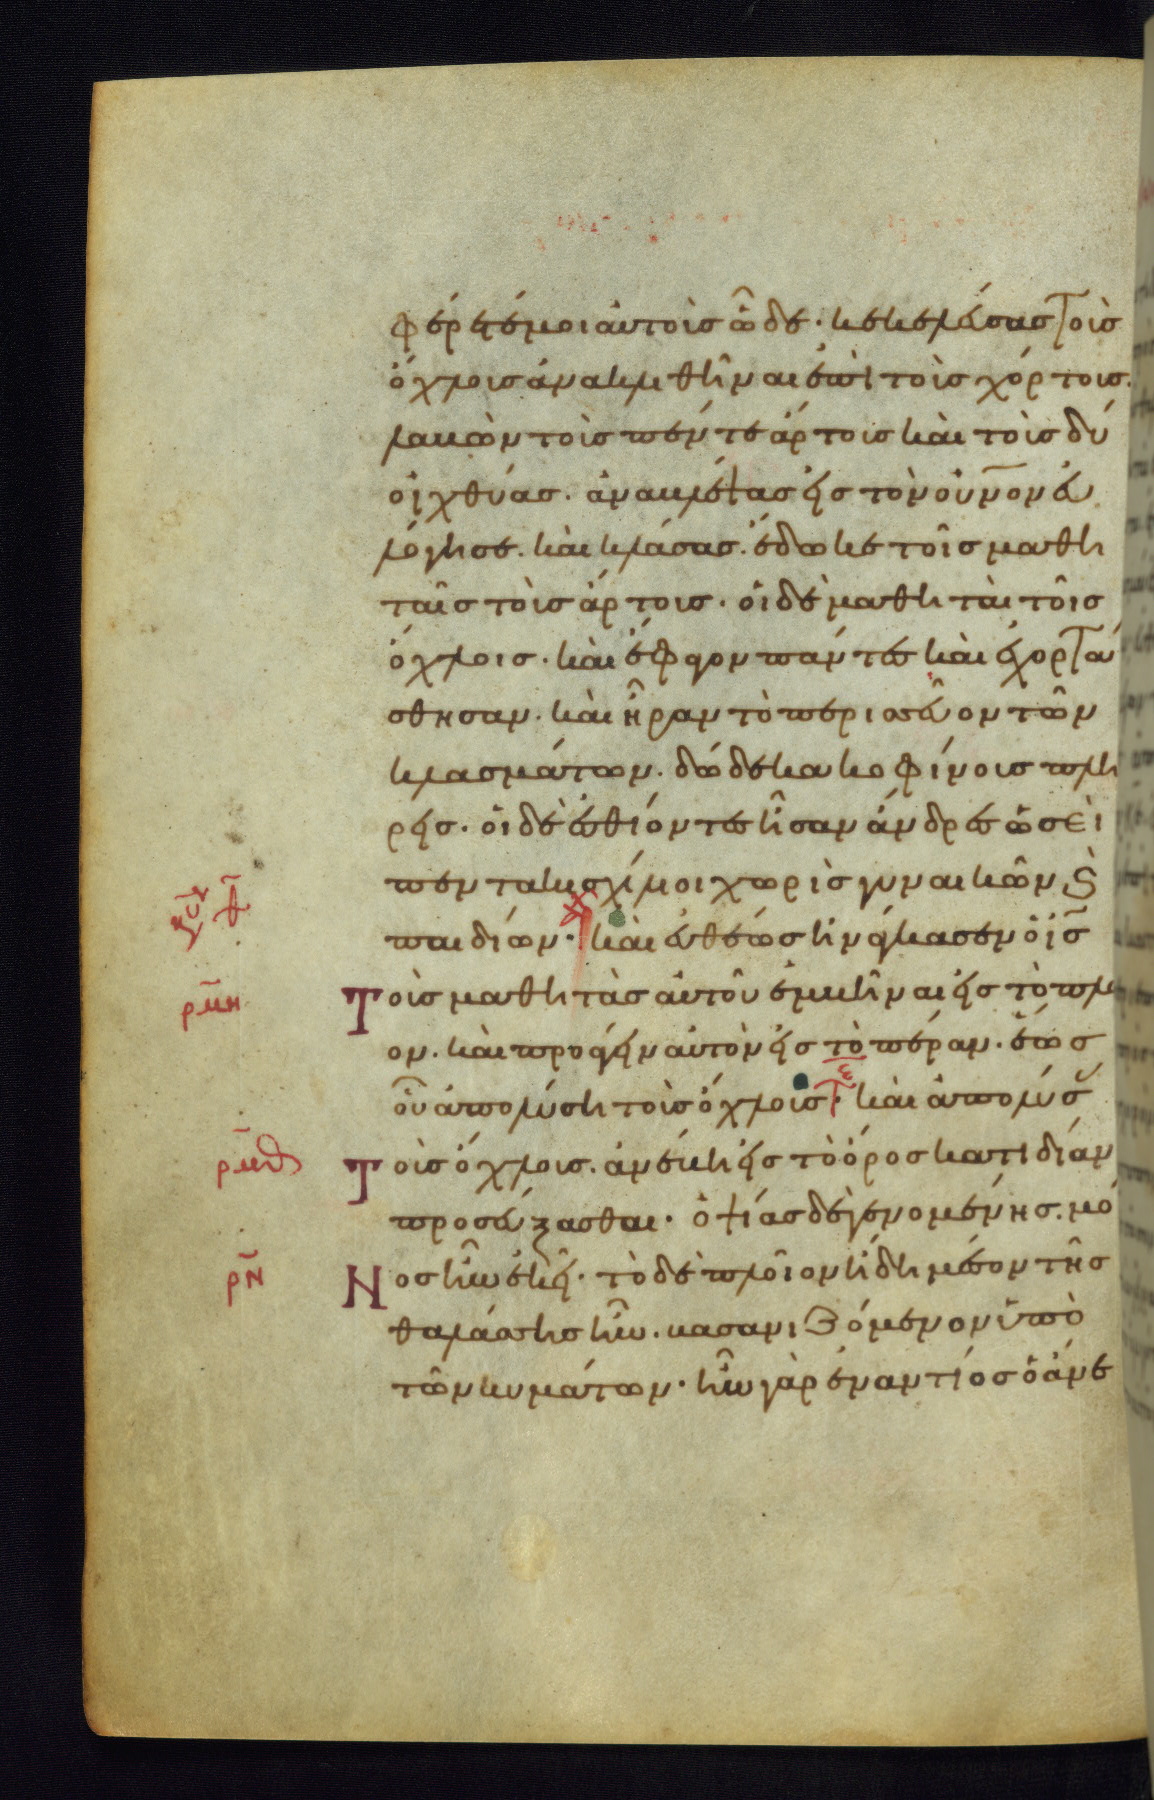 φέρετέ μοι αὐτοὺς ὧδε· κε κελεύσας τοὺς
ὄχλους ἀνακληθῆναι ἐπὶ τοὺς χόρτους.
λαβὼν τοὺς πέντε ἄρτους καὶ τοὺς δύ
ο ἰχθύας. ἀναβλέψας εἰς τὸν οὐ̅ν̅ον εὐ
λόγησε. καὶ κλάσας. ἔδωκε τοῖς μαθη
ταῖς τοὺς ἄρτους. οἱ δὲ μαθηταὶ τοῖς
ὄχλοις. καὶ ἔφαγον πάντες καὶ ἐχορτά
σθησαν. καὶ ἦραν τὸ περισσεῦον τῶν
κλασμάτων. δώδεκα κοφίνους πλή
ρεις. οἱ δὲ ἐσθίοντες ἦσαν ἄνδρες ὡσεὶ
πεντακισχίλιοι χωρὶς γυναικῶν ϗ
παιδίων· καὶ εὐθέως ἠνάγκασεν ὁ ι̅ς̅
ρμη τοὺς μαθητὰς αὐτοῦ ἐμβῆναι εἰς τὸ πλοῖ
ον. καὶ προάγειν αὐτὸν εἰς τὸ πέραν. ἕως
οὗ ἀπολύσῃ τοὺς ὄχλους· καὶ ἀπολύσας
ρμθ τοὺς ὄχλους. ἀνέβη εἰς τὸ ὄρος κατιδίαν
προσεύξασθαι. ὀψίας δὲ γενομένης. μό
ρν νος ἦν ἐκεῖ. τὸ δὲ πλοῖον ἤδη μέσον τῆς
θαλάσσης ἦν. βασανιζόμενον ὑπὸ
τῶν κυμάτων. ἦν γὰρ ἐναντίος ὁ ἄνε